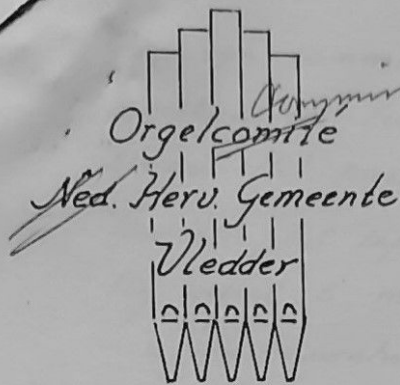 Orgelcomité
Ned. Herv. Gemeente
Vledder